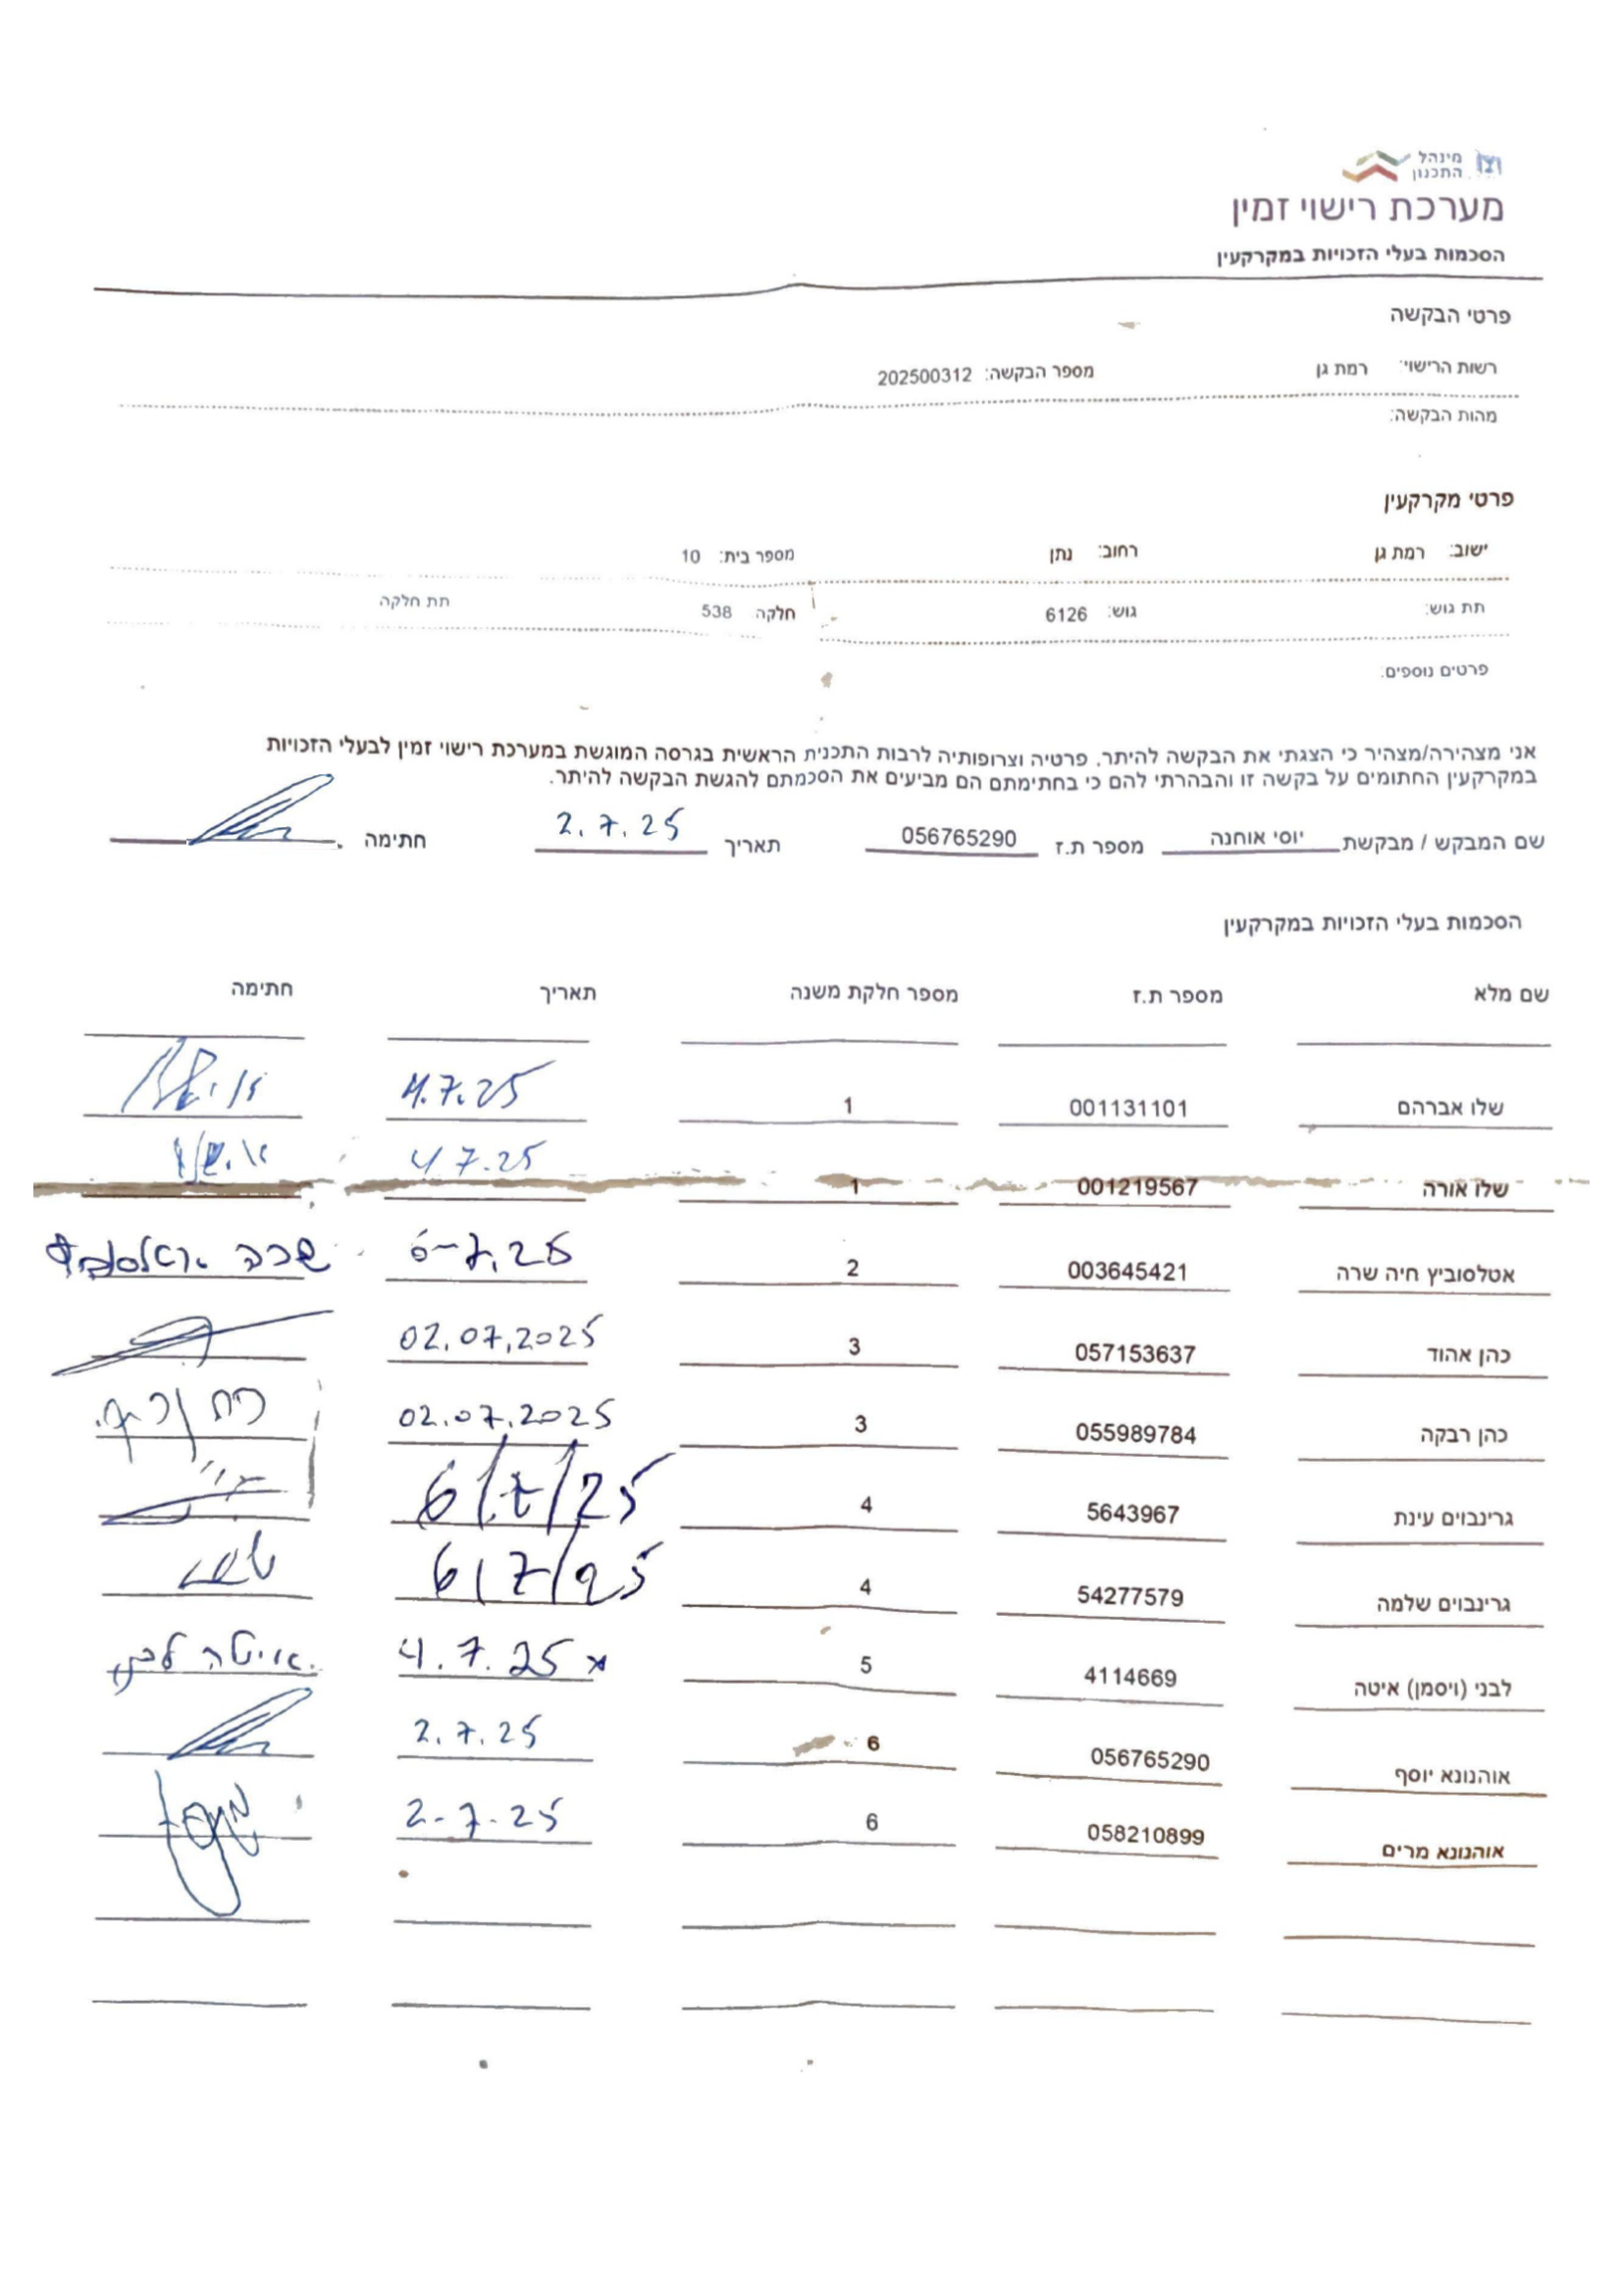 מינהל
התכנון
מערכת רישוי זמין
הסכמות בעלי הזכויות במקרקעין
פרטי הבקשה
רשות הרישוי: רמת גן מספר הבקשה: 202500312
מהות הבקשה:
פרטי מקרקעין
ישוב: רמת גן רחוב: נתן מספר בית: 10
תת גוש: גוש: 6126 חלקה 538 תת חלקה
פרטים נוספים:
אני מצהירה/מצהיר כי הצגתי את הבקשה להיתר, פרטיה וצרופותיה לרבות התכנית הראשית בגרסה המוגשת במערכת רישוי זמין לבעלי הזכויות
במקרקעין החתומים על בקשה זו והבהרתי להם כי בחתימתם הם מביעים את הסכמתם להגשת הבקשה להיתר.
שם המבקש / מבקשת יוסי אוחנה מספר ת.ז 056765290 תאריך 2.7.25 חתימה
הסכמות בעלי הזכויות במקרקעין
שם מלא מספר ת.ז מספר חלקת משנה תאריך חתימה
שלו אברהם 001131101 1 4.7.25
שלו אורה 001219567 1 4.7.25
אטלסוביץ חיה שרה 003645421 2 6-7.25 שרה
כהן אהוד 057153637 3 02.07.2025
כהן רבקה 055989784 3 02.07.2025
גרינבוים עינת 5643967 4 6/7/25
גרינבוים שלמה 54277579 4 6/7/25
לבני (ויסמן) איטה 4114669 5 4.7.25 x איטה לבני
אוהנונא יוסף 056765290 6 2.7.25
אוהנונא מרים 058210899 6 2-7-25